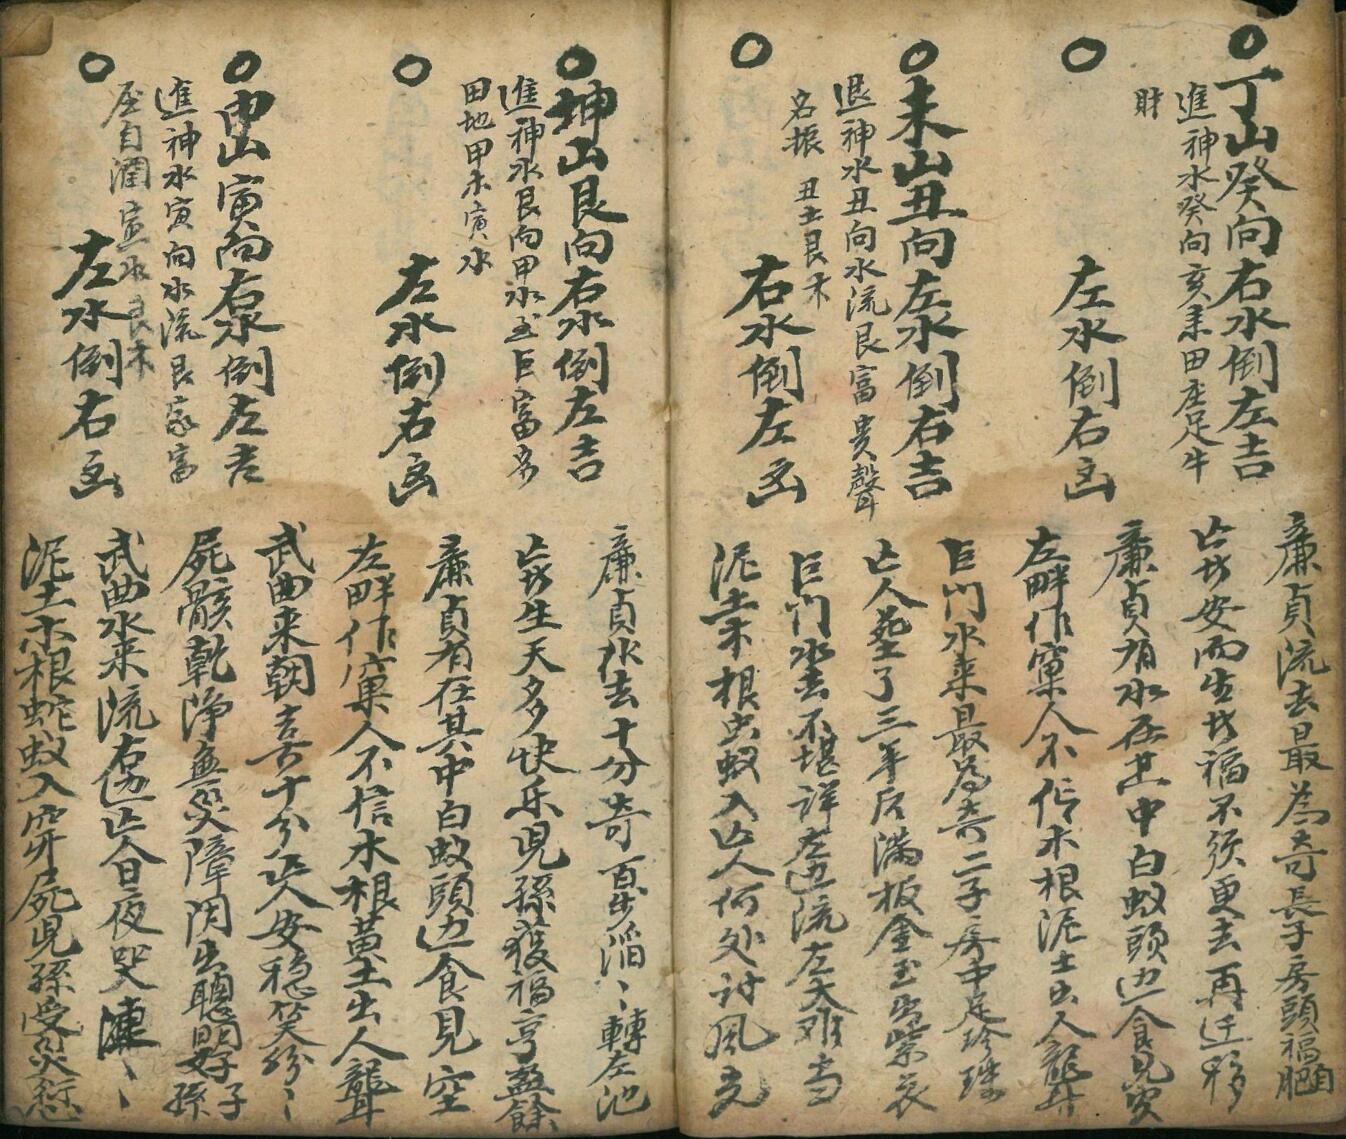 ○丁山癸向右水倒左吉
進神水癸向亥来田庄足牛
財
○左水倒右凶
廉貞流去最為奇長子房頭福
安而生福不須更去再迁移
廉貞有水在其中白蚁頭边食見空
左畔作窠人不信木根泥土出人聾
○未山丑向左水倒右吉
退神水丑向水流艮富貴聲
名振 丑土艮木
○右水倒左凶
巨門水来最為奇二子房中足珍珠
亡人葬了三年后满板金玉出紫衣
巨門水去不堪詳左边流左天难当
泥土木根虫蚁入亡人何处討風光
○坤山艮向右水倒左吉
進神水艮向甲水至巨富多
田地甲木寅水
○左水倒右凶
廉貞水去十分奇百步滔〻轉左池
生天多快乐児孫發福亨盈餘
廉貞有在其中白蚁頭边食見空
左畔作窠人不信木根黄土出人聾
○申山寅向右水倒左吉
進神水寅向水流艮家富
屋自潤寅水艮木
○左水倒右凶
武曲来朝吉十分亡人安稳笑紛〻
屍骸乾净無災障閃出聰明好子孫
武曲水来流右边亡人日夜哭漣〻
泥土木根蛇蚁入穿屍児孫受災